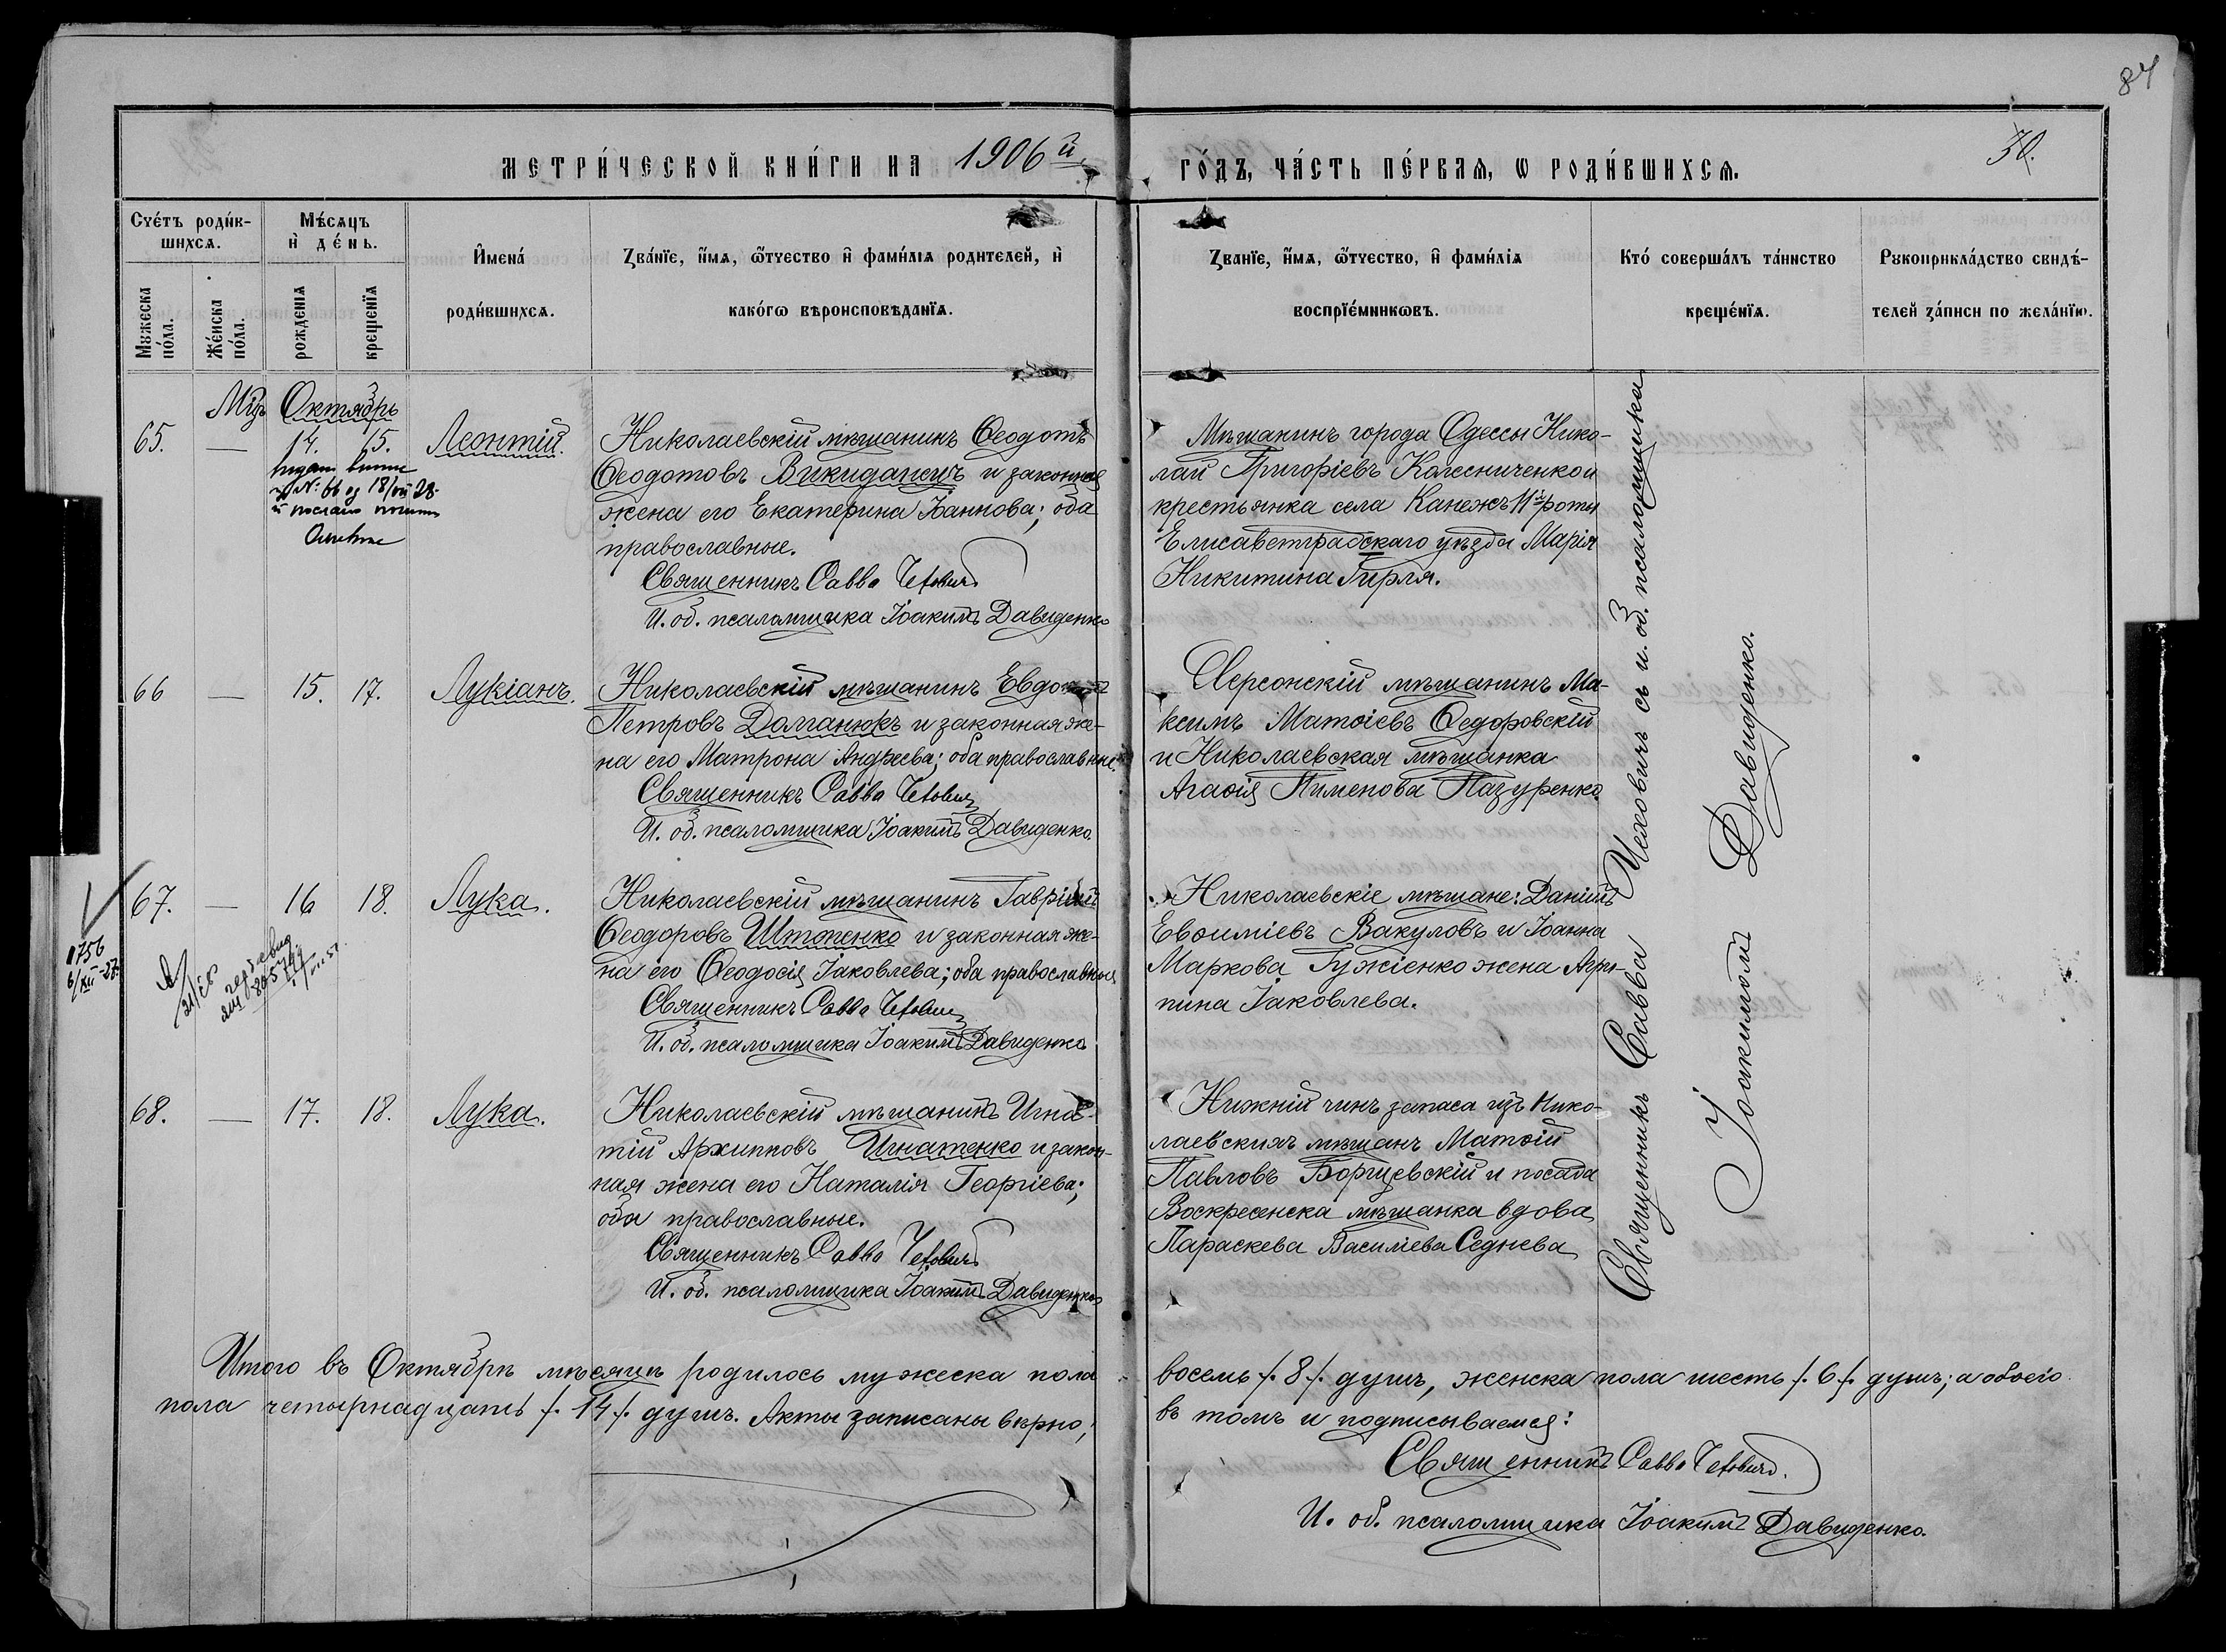 84
МЕТРИ́ЧЕСКОЙ КНИ́ГИ НА 1906й ГО́ДЪ, ЧА́СТЬ ПЕ́РВАѦ, Ѡ РОДИ́ВШИХСѦ.
30.
Счетъ роди́вшихсѧ.
Мꙋжеска по́ла.
Же́нска по́ла.
Мѣ́сѧцъ и де́нь.
рожденїѧ
крещенїѧ
Имена́ роди́вшихсѧ.
Зва́нїе, и́мѧ, ѻ́тчество и фами́лїѧ родителей, и
како́гѡ вѣроисповѣданїѧ.
Званїе, и́мѧ, ѻ́тчество, и фами́лїѧ
воспрїе́мникѡвъ.
Кто́ соверша́лъ та́инство
креще́нїѧ.
Рꙋкоприкла́дство свидѣ́-
телей за́писи по жела́нїю.
Мцъ Октябрь
65. — 14. 15. Леонтій.
Николаевскій мѣщанинъ Ѳеодотъ
Ѳеодотовъ Викиданецъ и законная
жена его Екатерина Іоаннова; оба
православные.
Священникъ Савва Чеховичъ
И. об. псаломщика Іоакимъ Давиденко
Мѣщанинъ города Одессы Нико-
лай Григоріевъ Колесниченко и
крестьянка села Канежъ 11й роты
Елисаветградскаго уѣзда Марія
Никитина Гирля.
66 — 15. 17. Лукіанъ.
Николаевскій мѣщанинъ Евдокимъ
Петровъ Долганюкъ и законная же-
на его Матрона Андреева; оба православные.
Священникъ Савва Чеховичъ
И. об. псаломщика Іоакимъ Давиденко.
Херсонскій мѣщанинъ Ма-
ксимъ Матѳіевъ Ѳедоровскій
и Николаевская мѣщанка
Агаѳія Пименова Пазуренко.
67. — 16 18. Лука.
1756
6/XII-27
Николаевскій мѣщанинъ Гавріилъ
Ѳеодоровъ Штопенко и законная же-
на его Ѳеодосія Іаковлева; оба православные
Священникъ Савва Чеховичъ
И. об. псаломщика Іоакимъ Давиденко
Николаевскіе мѣщане: Даніилъ
Евѳиміевъ Вакуловъ и Іоанна
Маркова Гужіенко жена Агри-
пина Іаковлева.
68. — 17. 18. Лука.
Николаевскій мѣщанинъ Игна-
тій Архипповъ Игнатенко и закон-
ная жена его Наталія Георгіева;
оба православные.
Священникъ Савва Чеховичъ
И. об. псаломщика Іоакимъ Давиденко
Нижній чинъ запаса изъ Нико-
лаевскихъ мѣщанъ Матѳій
Павловъ Борщевскій и посада
Воскресенска мѣщанка вдова
Параскева Василіева Седнева
Священникъ Савва Чеховичъ съ и. об. псаломщика
Іоакимомъ Давиденко.
Итого въ Октябрѣ мѣсяцѣ родилось мужеска пола восемь /. 8 /. душъ, женска пола шесть /. 6 /. душъ; а обоего
пола четырнадцать /. 14 /. душъ. Акты записаны вѣрно, въ томъ и подписываемся:
Священникъ Савва Чеховичъ.
И. об. псаломщика Іоакимъ Давиденко.